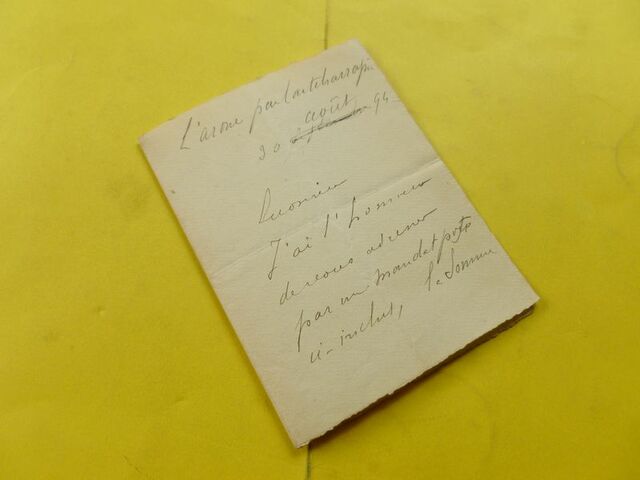 L'arone par Pontcharra
30 août 94
Monsieur
J'ai l'honneur
de vous adresser
par un mandat poste
ci-inclus, la somme